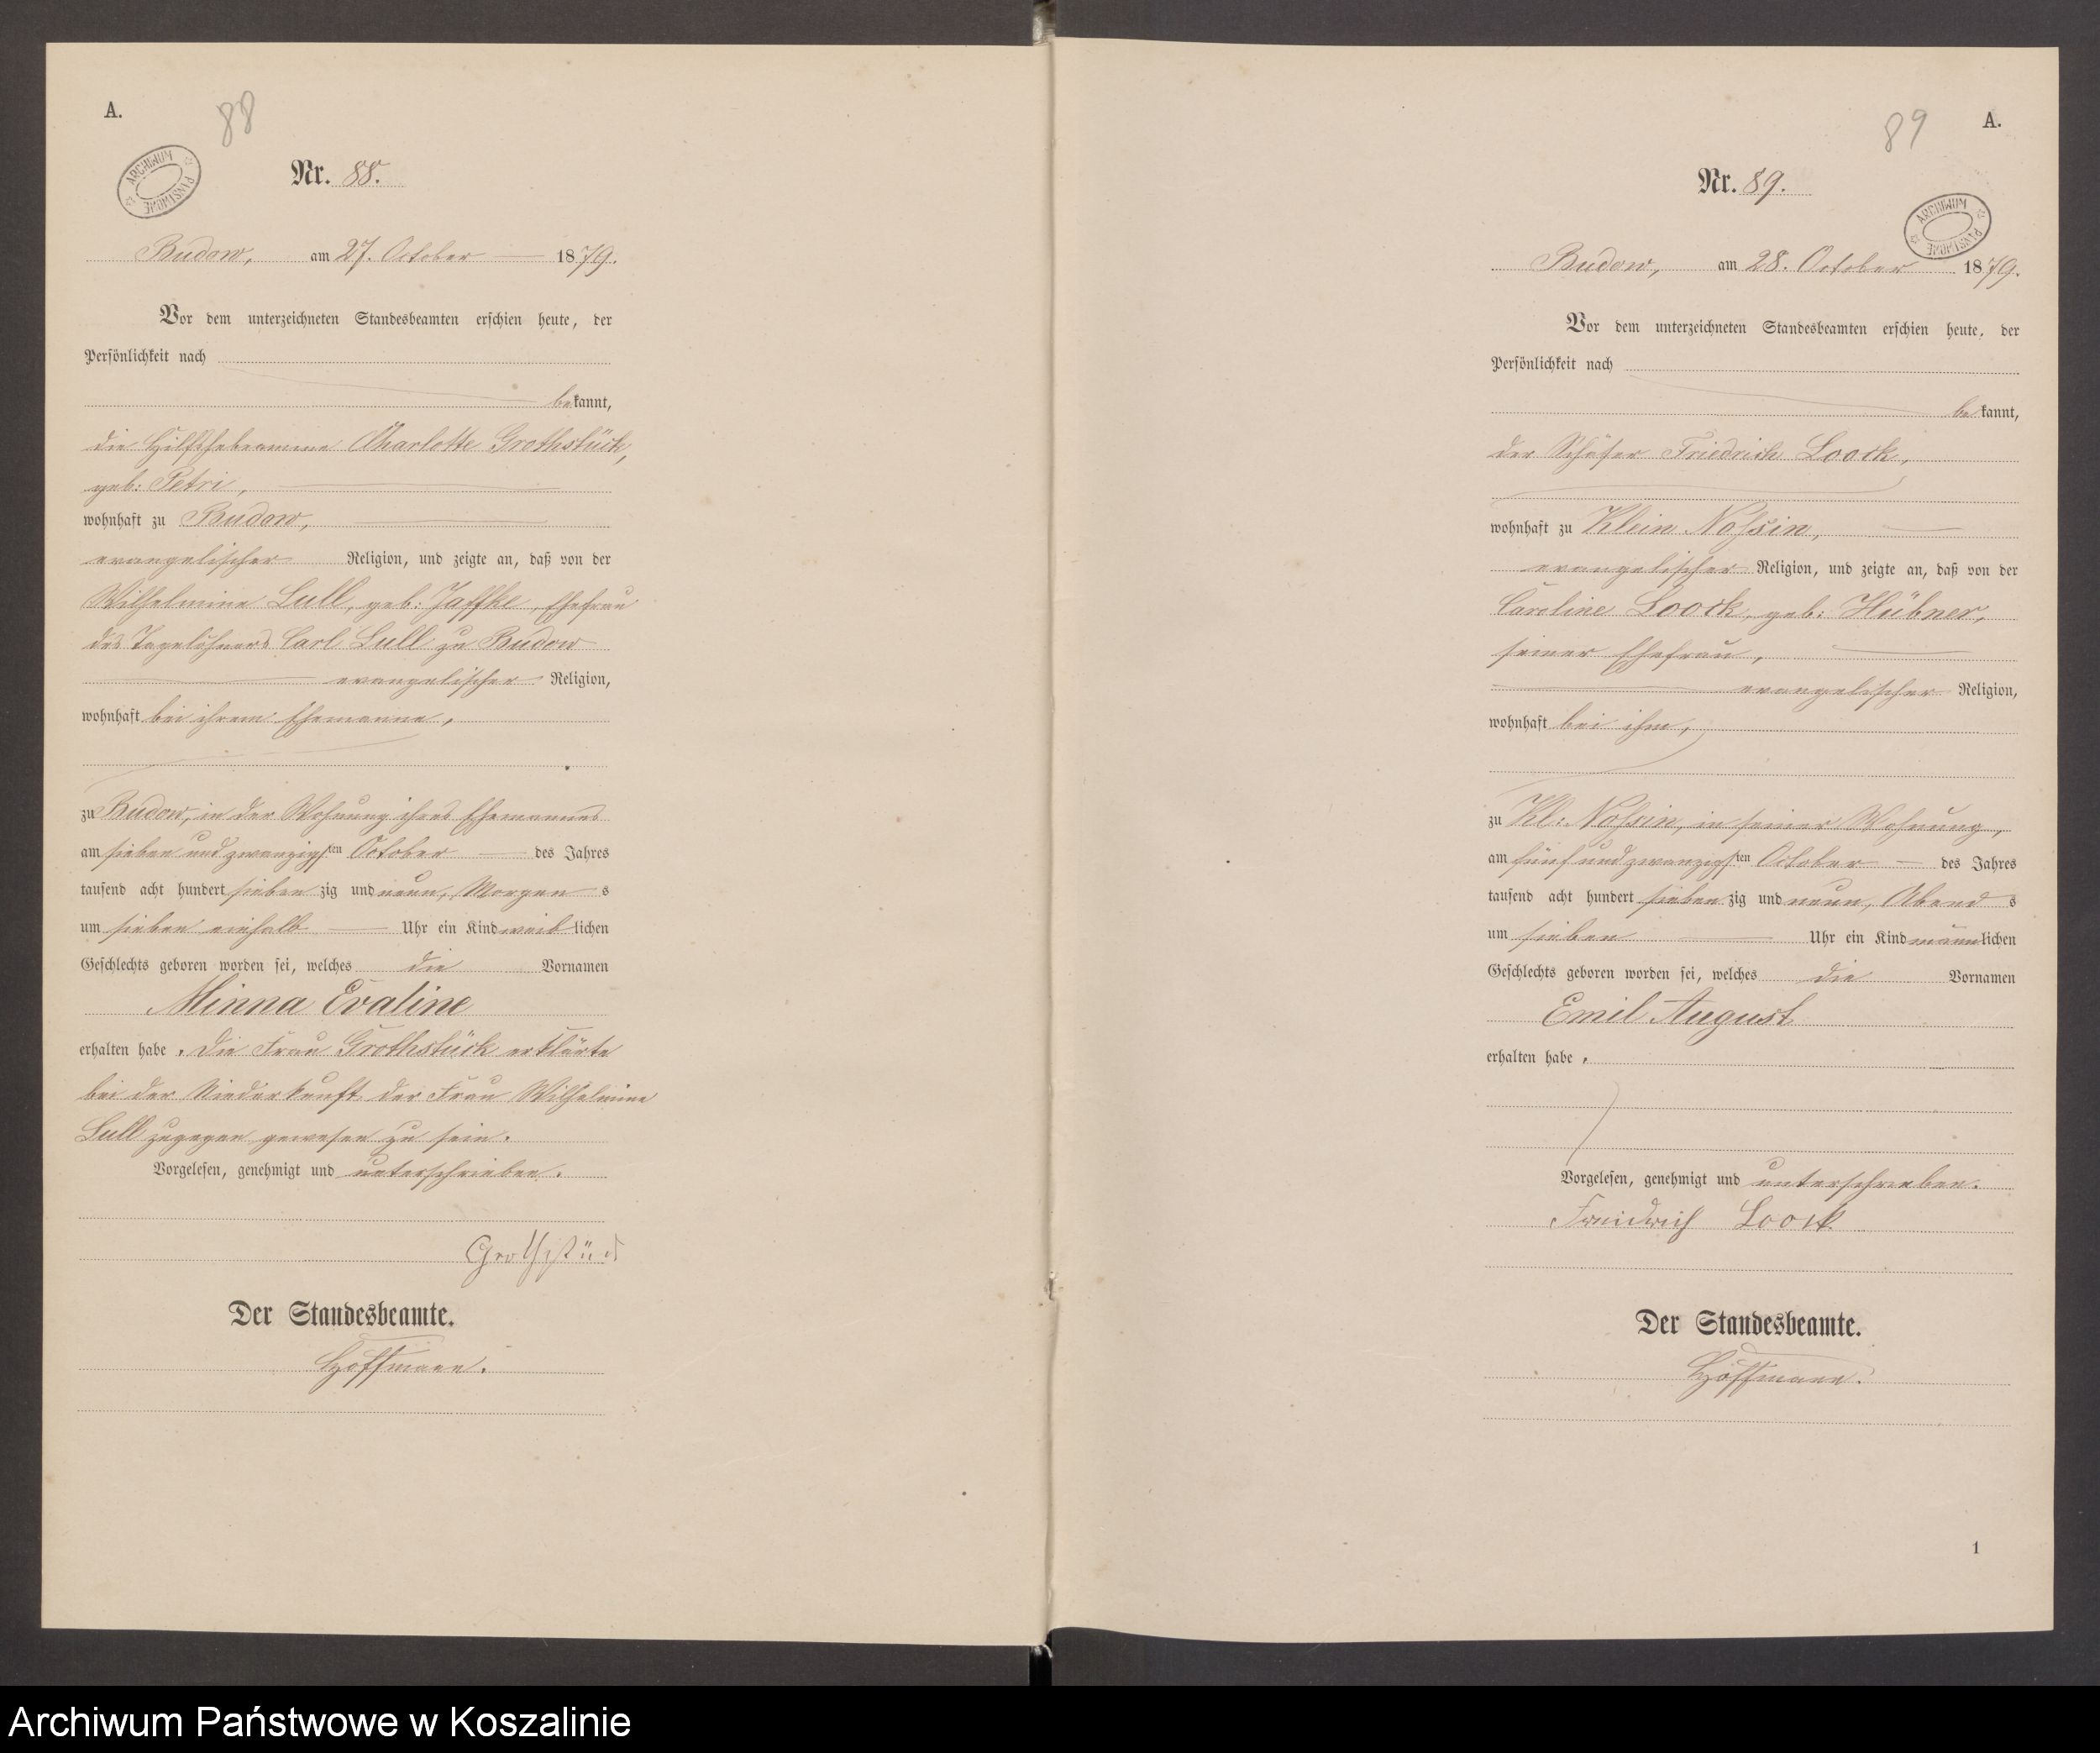 A.
88
ARCHIWUM PAŃSTWOWE
Nr. 88.
Budow, am 27. October 1879.
Vor dem unterzeichneten Standesbeamten erschien heute, der
Persönlichkeit nach
bekannt,
die Hilfshebeamme Charlotte Grothstück,
geb: Petri,
wohnhaft zu Budow,
evangelischer Religion, und zeigte an, daß von der
Wilhelmine Lull, geb: Jaffke, Ehefrau
des Tagelöhners Carl Lull zu Budow
evangelischer Religion,
wohnhaft bei ihrem Ehemanne,
zu Budow, in der Wohnung ihres Ehemannes
am sieben und zwanzigsten October des Jahres
tausend acht hundert siebenzig und neun, Morgens
um sieben einhalb Uhr ein Kind weiblichen
Geschlechts geboren worden sei, welches die Vornamen
Minna Evaline
erhalten habe. Die Frau Grothstück erklärte
bei der Niederkunft der Frau Wilhelmine
Lull zugegen gewesen zu sein.
Vorgelesen, genehmigt und unterschrieben.
Grothstück
Der Standesbeamte.
Hoffmann.
89
A.
Nr. 89.
ARCHIWUM PAŃSTWOWE
Budow, am 28. October 1879.
Vor dem unterzeichneten Standesbeamten erschien heute, der
Persönlichkeit nach
bekannt,
der Schäfer Friedrich Loock,
wohnhaft zu Klein Nossin,
evangelischer Religion, und zeigte an, daß von der
Caroline Loock, geb: Hübner,
seiner Ehefrau,
evangelischer Religion,
wohnhaft bei ihm,
zu Kl: Nossin, in seiner Wohnung,
am fünf und zwanzigsten October des Jahres
tausend acht hundert siebenzig und neun, Abends
um sieben Uhr ein Kind männlichen
Geschlechts geboren worden sei, welches die Vornamen
Emil August
erhalten habe.
Vorgelesen, genehmigt und unterschrieben.
Freidrich Loock
Der Standesbeamte.
Hoffmann.
1
Archiwum Państwowe w Koszalinie